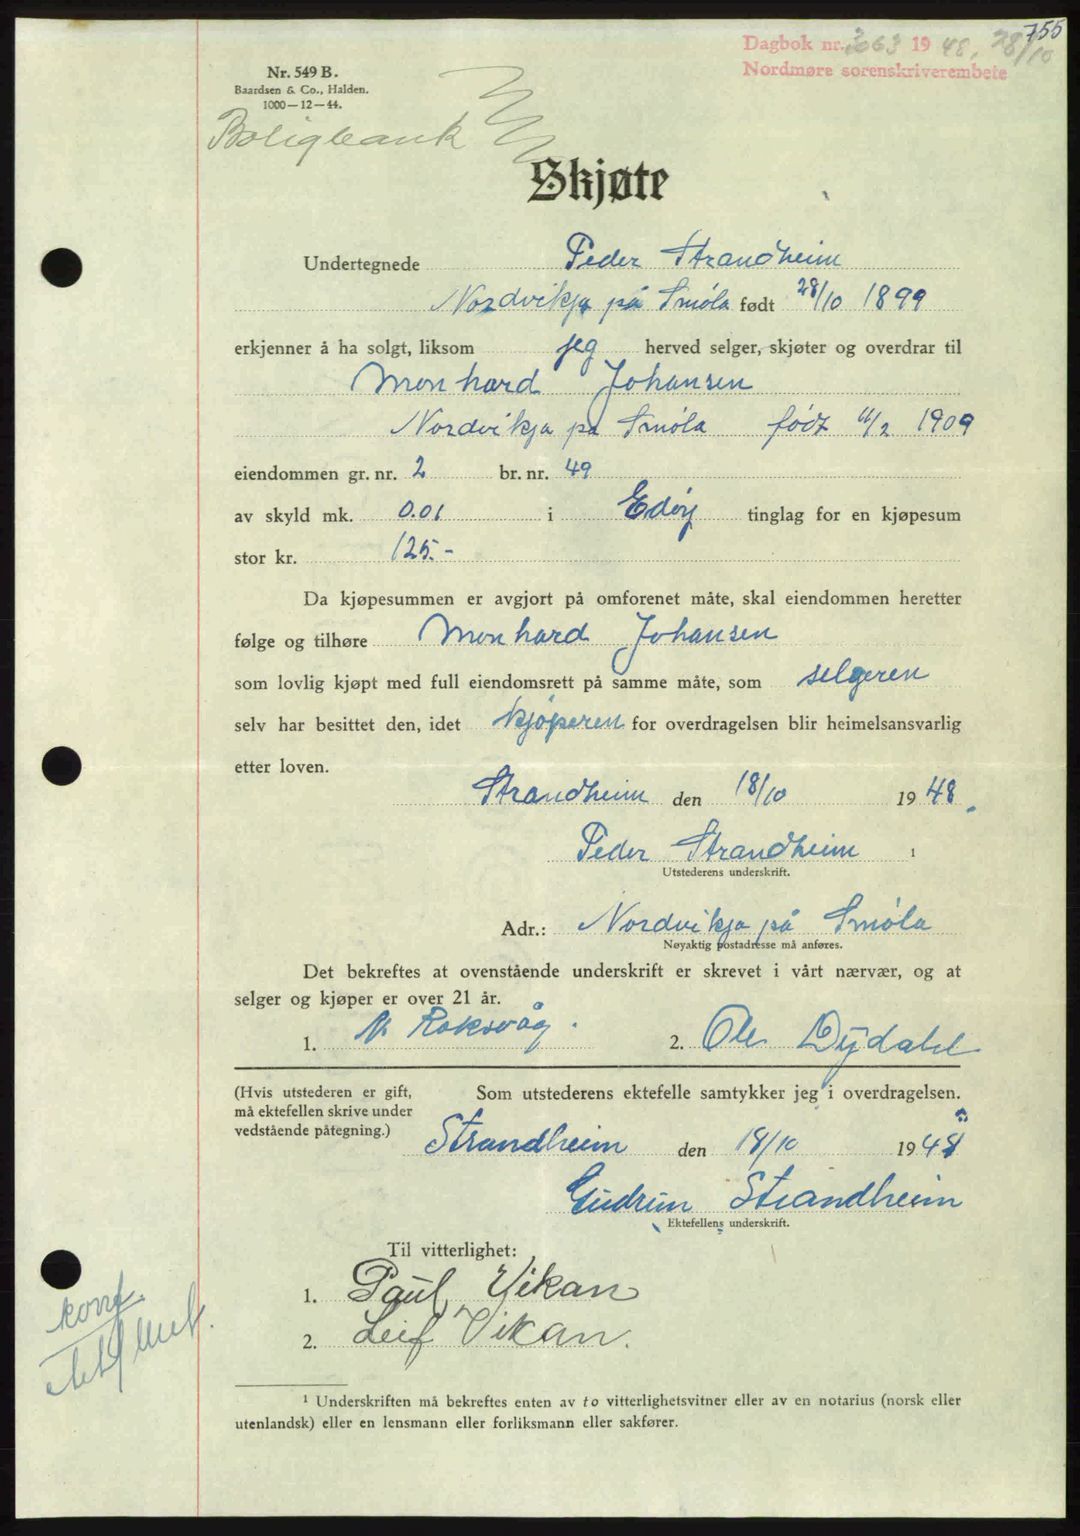 755
Dagbok nr. 3063 1948, 28/10
Nordmøre sorenskriverembete
Nr. 549 B.
Baardsen & Co., Halden.
1000—12—44.
Boligbank
Skjøte
Undertegnede Peder Strandheim
Nordvikja på Smøla født 28/10 1899
erkjenner å ha solgt, liksom jeg herved selger, skjøter og overdrar til
Monhard Johansen
Nordvikja på Smøla født 11/2 1909
eiendommen gr. nr. 2 br. nr. 49
av skyld mk. 0.01 i Edøy tinglag for en kjøpesum
stor kr. 125.-
Da kjøpesummen er avgjort på omforenet måte, skal eiendommen heretter
følge og tilhøre Monhard Johansen
som lovlig kjøpt med full eiendomsrett på samme måte, som selgeren
selv har besittet den, idet kjøperen for overdragelsen blir heimelsansvarlig
etter loven.
Strandheim den 18/10 1948.
Peder Strandheim ¹
Utstederens underskrift.
Adr.: Nordvikja på Smøla
Nøyaktig postadresse må anføres.
Det bekreftes at ovenstående underskrift er skrevet i vårt nærvær, og at
selger og kjøper er over 21 år.
1. N Roksvåg. 2. Ole Dyrdahl
(Hvis utstederen er gift, Som utstederens ektefelle samtykker jeg i overdragelsen.
må ektefellen skrive under
vedstående påtegning.)
Strandheim den 18/10 1948
Gudrun Strandheim
Ektefellens underskrift.
Til vitterlighet:
1. Paul Vikan
2. Leif Vikan.
konf.
¹ Underskriften må bekreftes enten av to vitterlighetsvitner eller av en notarius (norsk eller
utenlandsk) eller en lensmann eller forliksmann eller sakfører.